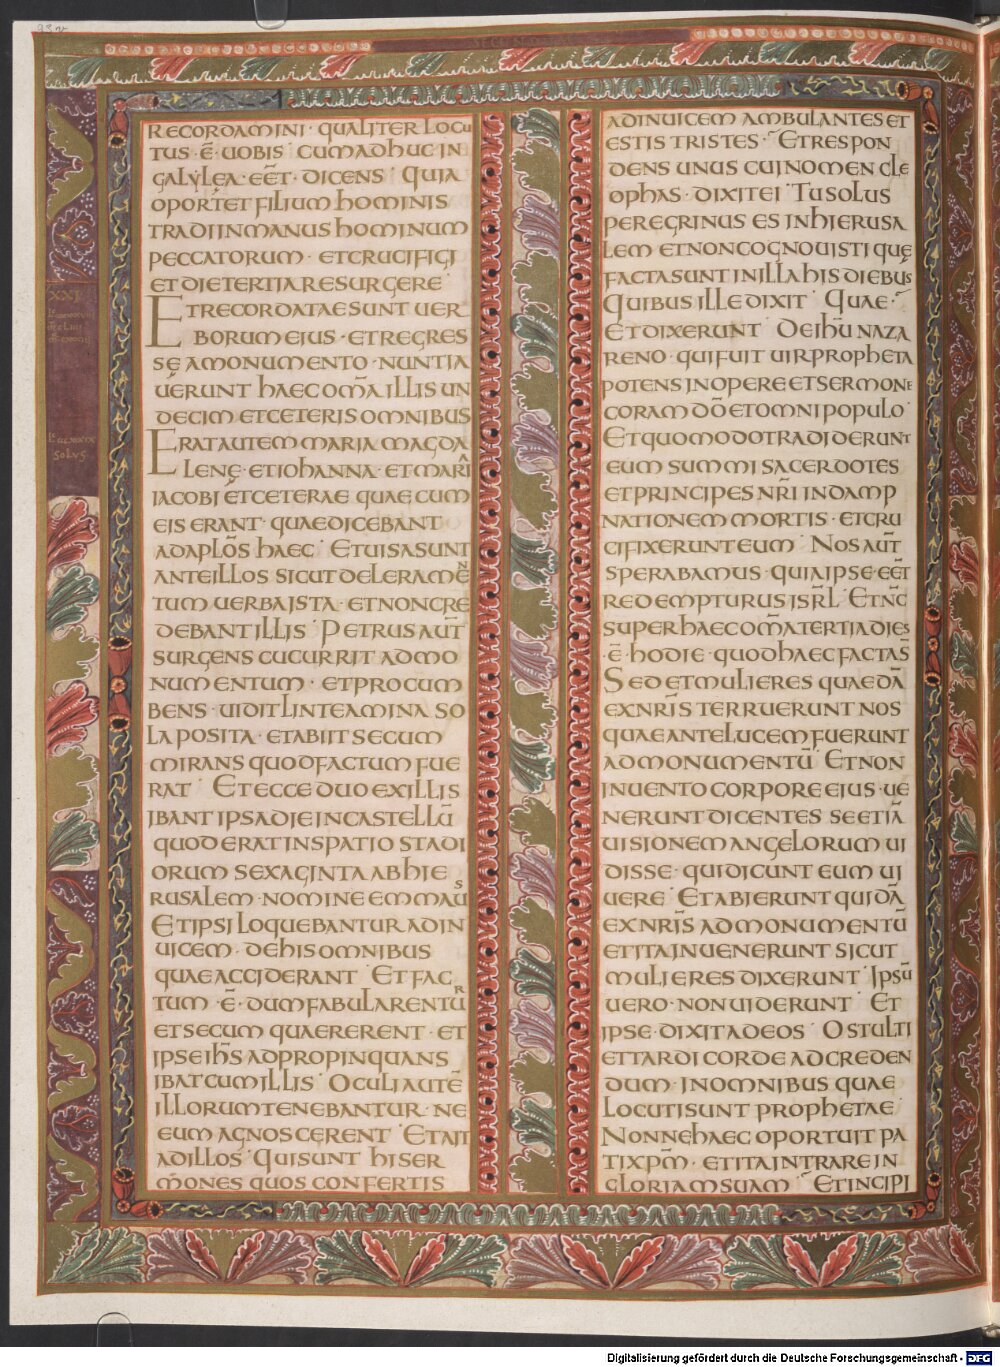 93v
RECORDAMINI · QUALITER LOCU
TUS · Ē · UOBIS · CUM ADHUC IN
GALYLEA · EĒT · DICENS · QUIA
OPORTET FILIUM HOMINIS
TRADI IN MANUS HOMINUM
PECCATORUM · ET CRUCIFIGI
ET DIE TERTIA RESURGERE
ET RECORDATAE SUNT UER
BORUM EIUS · ET REGRES
SĘ A MONUMENTO · NUNTIA
UERUNT HAEC OM̄A ILLIS UN
DECIM ET CETERIS OMNIBUS
ERAT AUTEM MARIA MAGDA
LENĘ · ET IOHANNA · ET MARI
IACOBI ET CETERAE QUAE CUM
EIS ERANT · QUAE DICEBANT
AD APLŌS HAEC · ET UISA SUNT
ANTE ILLOS SICUT DELERAMĒN
TUM UERBA ISTA · ET NON CRE
DEBANT ILLIS · PETRUS AUT̄
SURGENS CUCURRIT AD MO
NUMENTUM · ET PROCUM
BENS · UIDIT LINTEAMINA SO
LA POSITA · ET ABIIT SECUM
MIRANS QUOD FACTUM FUE
RAT · ET ECCE DUO EX ILLIS
IBANT IPSA DIE IN CASTELLŪ
QUOD ERAT IN SPATIO STADI
ORUM SEXAGINTA AB HIE
RUSALEM · NOMINE EMMAUS
ET IPSI LOQUEBANTUR AD IN
UICEM · DE HIS OMNIBUS
QUAE ACCIDERANT · ET FAC
TUM · Ē · DUM FABULARENTUR
ET SECUM QUAERERENT · ET
IPSE IH̄S ADPROPINQUANS
IBAT CUM ILLIS · OCULI AUTĒ
ILLORUM TENEBANTUR · NE
EUM AGNOSCERENT · ET AIT
AD ILLOS · QUI SUNT HI SER
MONES QUOS CONFERTIS
AD INUICEM AMBULANTES ET
ESTIS TRISTES · ET RESPON
DENS UNUS CUI NOMEN CLE
OPHAS · DIXIT EI · TU SOLUS
PEREGRINUS ES IN HIERUSA
LEM ET NON COGNOUISTI QUĘ
FACTA SUNT IN ILLA HIS DIEBUS
QUIBUS ILLE DIXIT · QUAE ·
ET DIXERUNT · DE IHŪ NAZA
RENO · QUI FUIT UIR PROPHETA
POTENS IN OPERE ET SERMONE
CORAM DŌ ET OMNI POPULO ·
ET QUOMODO TRADIDERUNT
EUM SUMMI SACERDOTES
ET PRINCIPES NR̄I IN DAMP
NATIONEM MORTIS · ET CRU
CIFIXERUNT EUM · NOS AUT̄
SPERABAMUS · QUIA IPSE EĒT
REDEMPTURUS ISRL̄ · ET NC̄
SUPER HAEC OM̄A TERTIA DIES
Ē · HODIE · QUOD HAEC FACTA S̄
SED ET MULIERES QUAEDĀ
EX NR̄IS TERRUERUNT NOS
QUAE ANTE LUCEM FUERUNT
AD MONUMENTŪ · ET NON
INUENTO CORPORE EIUS · UE
NERUNT DICENTES SE ETIĀ
UISIONEM ANGELORUM UI
DISSE · QUI DICUNT EUM UI
UERE · ET ABIERUNT QUIDĀ
EX NR̄IS AD MONUMENTŪ
ET ITA INUENERUNT SICUT
MULIERES DIXERUNT · IPSŪ
UERO · NON UIDERUNT · ET
IPSE · DIXIT AD EOS · O STULTI
ET TARDI CORDE AD CREDEN
DUM · IN OMNIBUS QUAE
LOCUTI SUNT PROPHETAE
NONNE HAEC OPORTUIT PA
TI XPM̄ · ET ITA INTRARE IN
GLORIAM SUAM · ET INCIPI
XXI
SOLUS
Digitalisierung gefördert durch die Deutsche Forschungsgemeinschaft - DFG